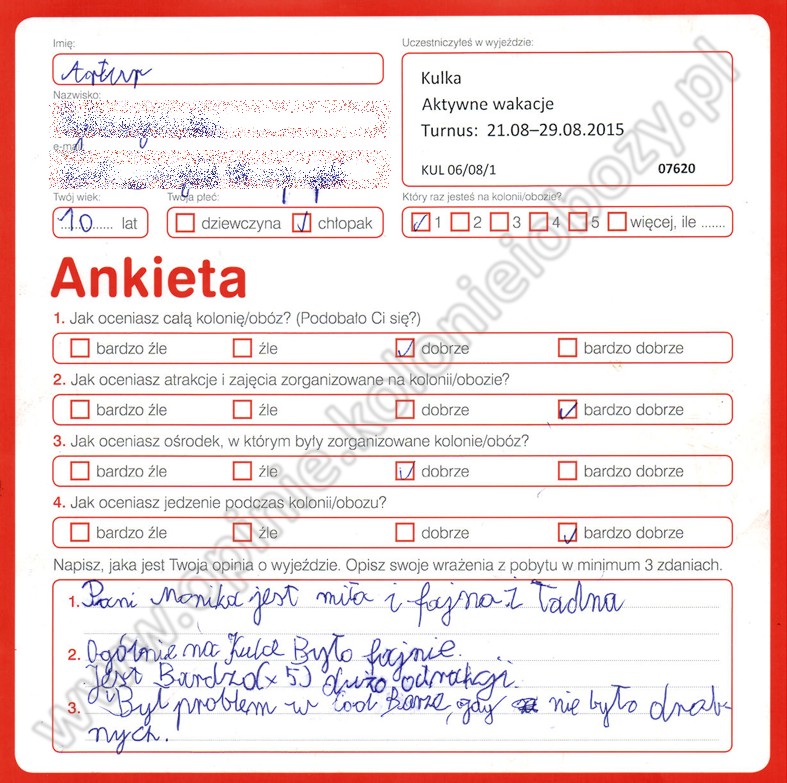 Imię:
Artur
Uczestniczyłeś w wyjeździe:
Kulka
Aktywne wakacje
Turnus: 21.08–29.08.2015
KUL 06/08/1 07620
Nazwisko:
e-mail
Twój wiek:
10 lat
Twoja płeć:
dziewczyna chłopak
Który raz jesteś na kolonii/obozie?
1 2 3 4 5 więcej, ile .......
Ankieta
1. Jak oceniasz całą kolonię/obóz? (Podobało Ci się?)
bardzo źle źle dobrze bardzo dobrze
2. Jak oceniasz atrakcje i zajęcia zorganizowane na kolonii/obozie?
bardzo źle źle dobrze bardzo dobrze
3. Jak oceniasz ośrodek, w którym były zorganizowane kolonie/obóz?
bardzo źle źle dobrze bardzo dobrze
4. Jak oceniasz jedzenie podczas kolonii/obozu?
bardzo źle źle dobrze bardzo dobrze
Napisz, jaka jest Twoja opinia o wyjeździe. Opisz swoje wrażenia z pobytu w minimum 3 zdaniach.
1. Pani Monika jest miła i fajna i ładna
2. Ogólnie na Kulce Było fajnie.
Jest Bardzo (x 5) dużo
3. Był problem w cool Barze, gdy nie było drob
nych.
www.opinie.kolonieiobozy.pl